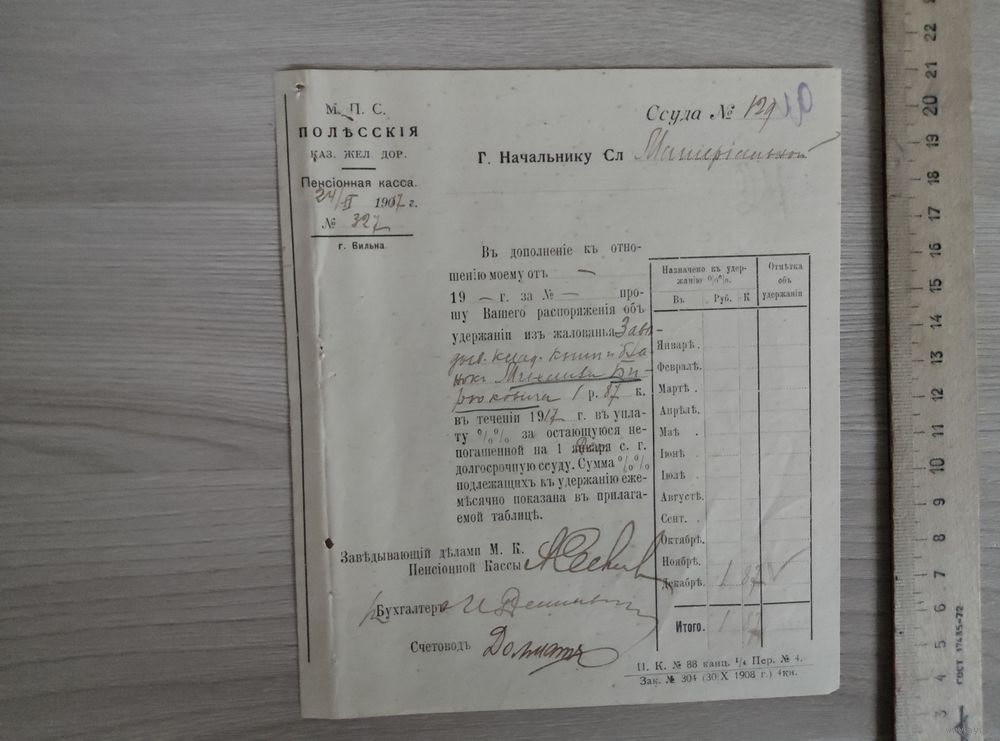 М. П. С.
ПОЛѢССКІЯ
КАЗ. ЖЕЛ. ДОР.
Пенсіонная касса.
24/ 1917 г.
№ 327
г. Вильна.
Ссуда № 129
Г. Начальнику Сл Матеріальной
Въ дополненіе къ отно-
шенію моему отъ —
19 — г. за № — про-
шу Вашего распоряженія объ
удержаніи изъ жалованья Завѣ
дыв. клад. книгъ и бла
нокъ
1 р. 87 к.
въ теченіи 1917 г. въ упла-
ту %% за остающуюся не-
погашенной на 1 января с. г.
долгосрочную ссуду. Сумма %%
подлежащихъ къ удержанію еже-
мѣсячно показана въ прилага-
емой таблицѣ.
Назначено къ удер- Отмѣтка
жанію %%. объ
Въ Руб. К удержаніи
Январѣ.
Февралѣ.
Мартѣ.
Апрѣлѣ.
Маѣ.
Іюнѣ.
Іюлѣ.
Августѣ.
Сент.
Октябрѣ.
Ноябрѣ.
Декабрѣ. 1 87
Итого. 1 87
Завѣдывающій дѣлами М. К.
Пенсіонной Кассы
Бухгалтеръ
Счетоводъ
П. К. № 88 канц. 1/4 Пер. № 4.
Зак. № 304 (30/X 1908 г.) 4кн.
22
21
20
19
18
17
16
15
14
13
12
11
10
9
8
7
6
5
4
3
ГОСТ 17435-72